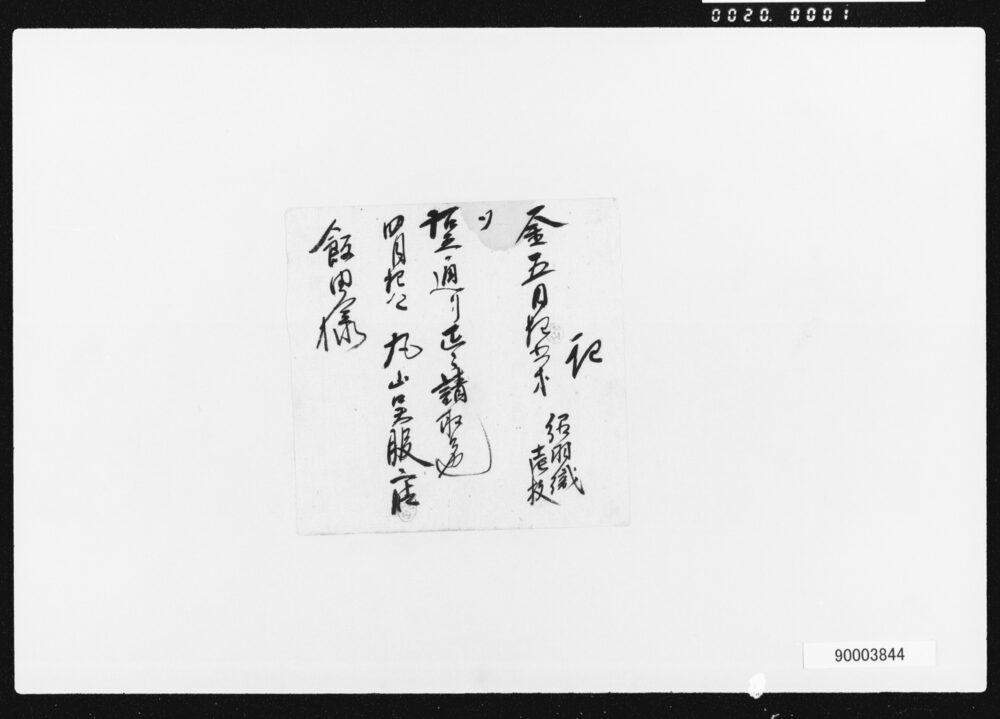 0020. 0001
記
金五円
絽羽織
壱枚
〆
右之通り正ニ請取
四月 丸山呉服店
飯田様
90003844